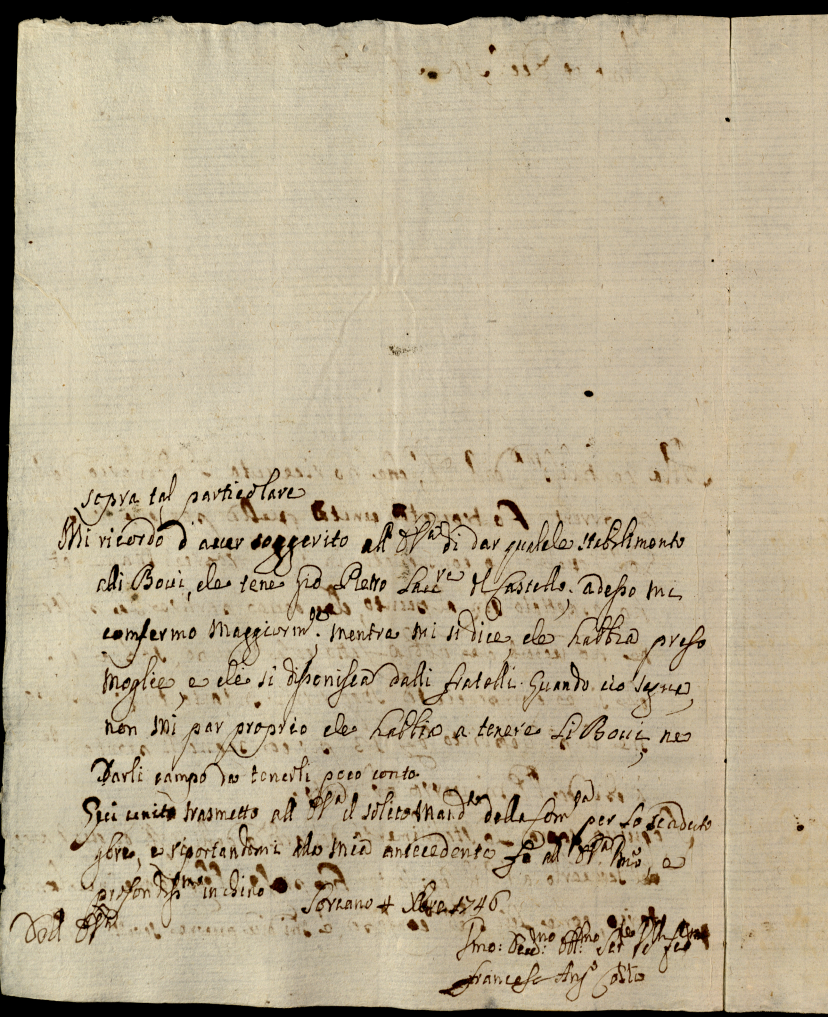 sopra tal particolare
Mi ricordo d'aver soggerito all' di dar qualche stabilimento
alli Bovi, che tene Gio Pietro il Castello; adesso mi
confermo Maggiorm; mentre mi si dice, che habbia preso
Moglie, e che si disponisca dalli fratelli. Quando cio segue,
non mi par proprio che habbia a tenere li Bovi, ne
Darli campo da tenerli poco conto
Qui unito trasmetto all' il solito Mand della per lo scaduto
9bre, e riportandomi alla mia antecedente all' e
inchino Soreano 4 Xbre 1746
Dell'
Francesc